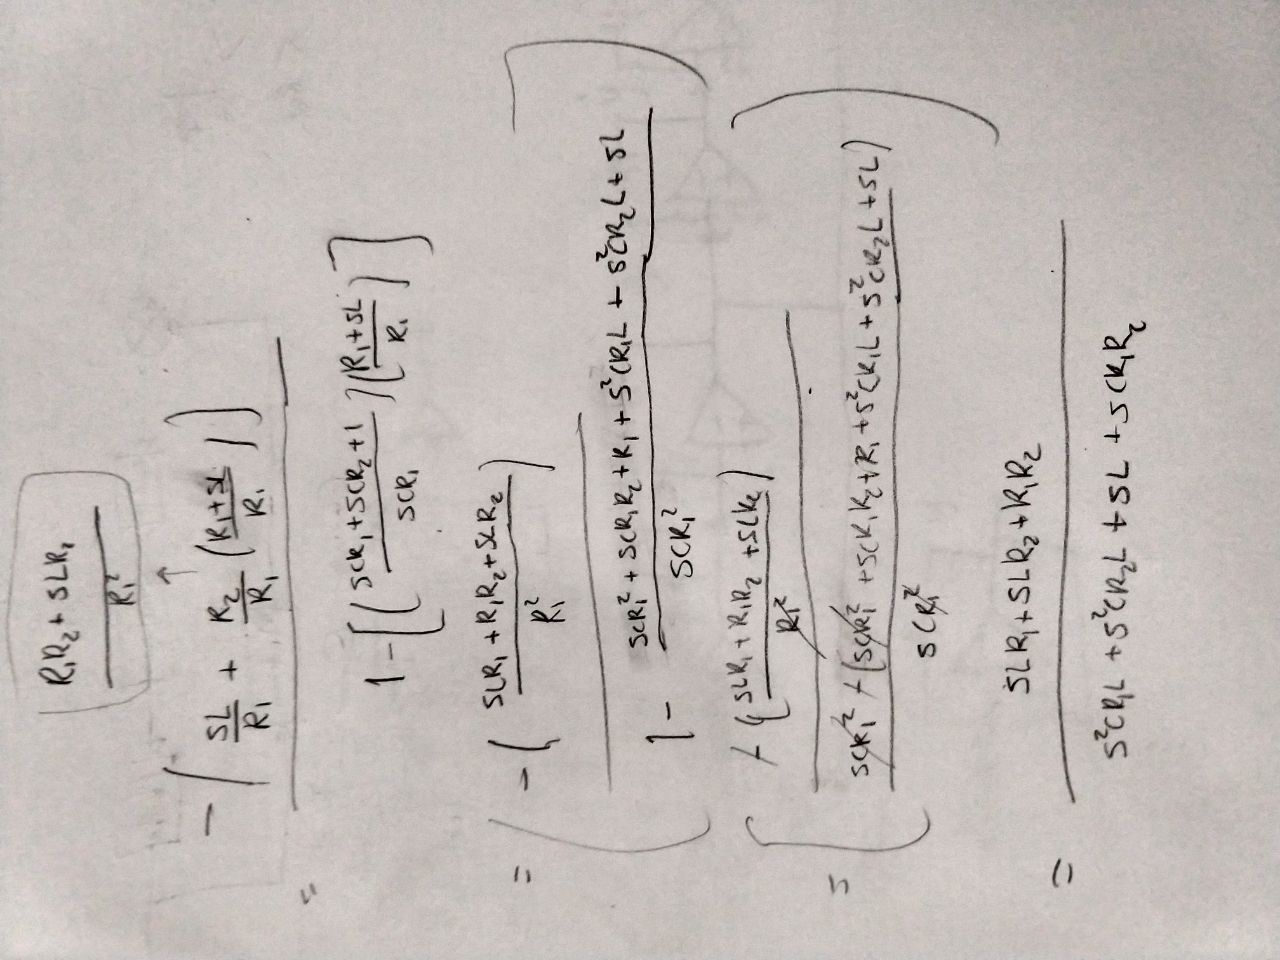 R₁R₂ + SLR₂
R₁²
↑
- ( SL/R₁ + R₂/R₁ ( (R₁+SL)/R₁ ) )
=
1 - [ ( (SCR₁+SCR₂+1)/SCR₁ ) ( (R₁+SL)/R₁ ) ]
= - ( (SLR₁ + R₁R₂ + SLR₂)/R₁² )
1 - (SCR₁² + SCR₁R₂ + R₁ + S²CR₁L + S²CR₂L + SL)/SCR₁²
= - ( (SLR₁ + R₁R₂ + SLR₂)/R₁² )
SCR₁² - (SCR₁² + SCR₁R₂ + R₁ + S²CR₁L + S²CR₂L + SL)
SCR₁²
SLR₁ + SLR₂ + R₁R₂
=
S²CR₁L + S²CR₂L + SL + SCR₁R₂